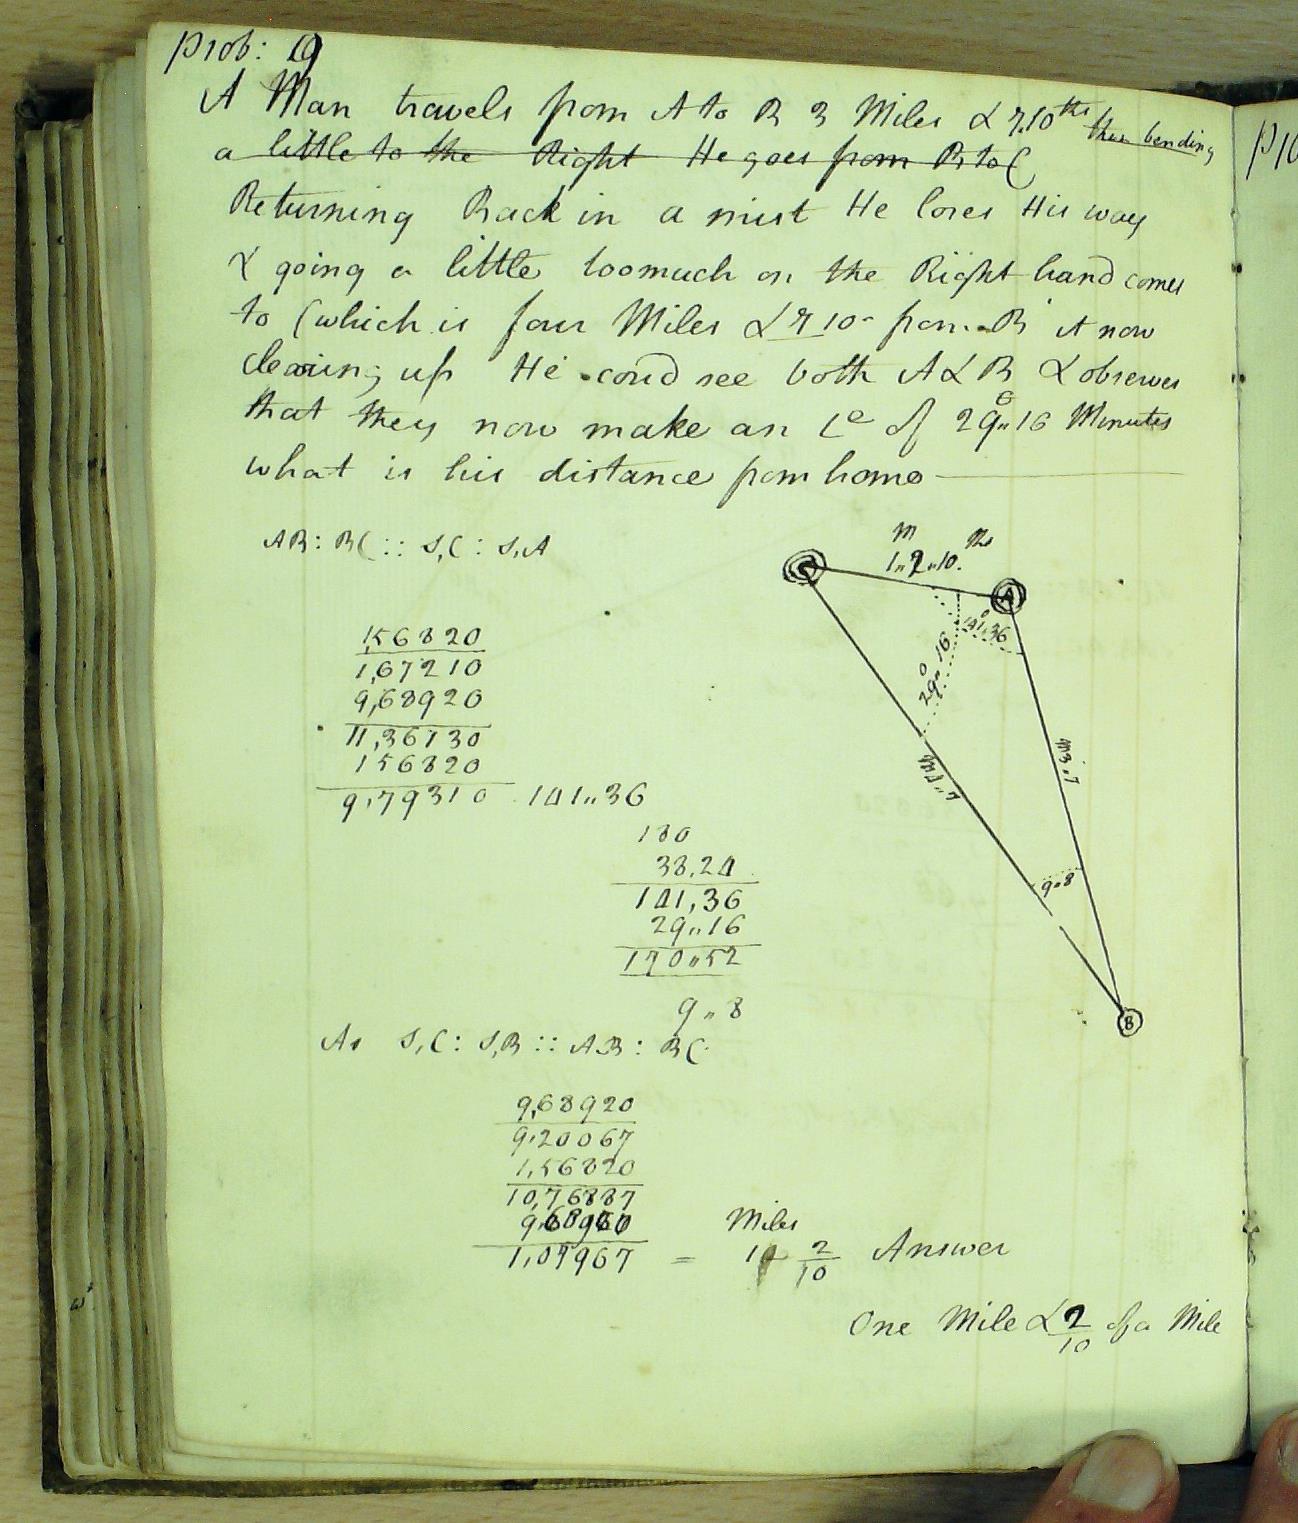 Prob: 9
A Man travels from A to B 3 Miles & 7.10ths then bending
a little to the Right He goes from B to C
Returning Back in a mist He loses His way
& going a little too much on the Right hand comes
to C which is four Miles & 7 10s from B it now
clearing up He could see both A & B & observes
that they now make an Le of 29°"16 Minutes
what is his distance from home
AB: BC :: S,C : S,A
M
1"2"10. ths
A
141°"36
29°"16
M3"7
M4"7
9"8
B
1,56820
1,67210
9,68920
11,36130
156820
9,79310 141"36
180
38,24
141,36
29"16
170"52
9"8
As S,C: S,B :: AB: BC
9,68920
9,20067
1,56820
10,76887
1,07967 = 1 2/10 Answer
Miles
One Mile & 2/10 of a Mile